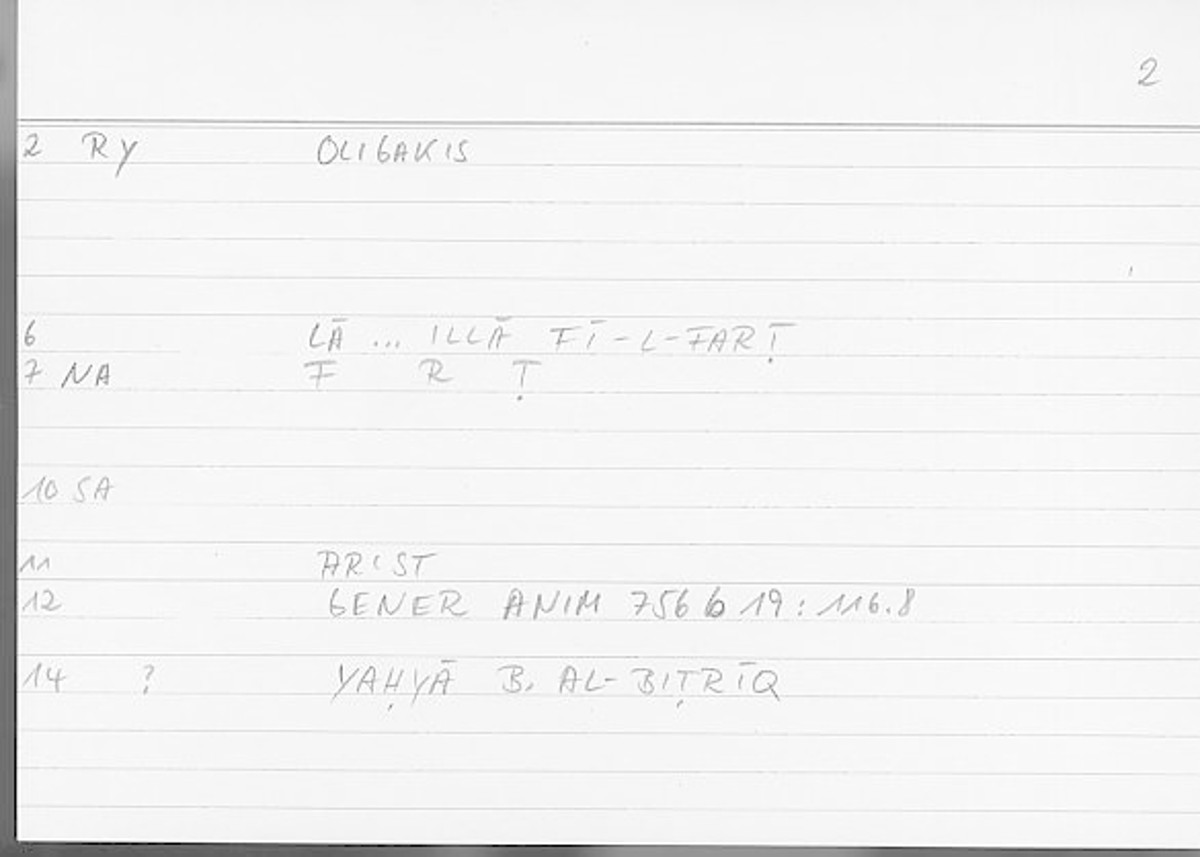 2
2 RY OLIGAKIS
6 LĀ ... ILLĀ FĪ-L-FARṬ
7 NA F R Ṭ
10 SA
11 ARIST
12 GENER ANIM 756 b 19 : 116.8
14 ? YAḤYĀ B. AL-BIṬRĪQ